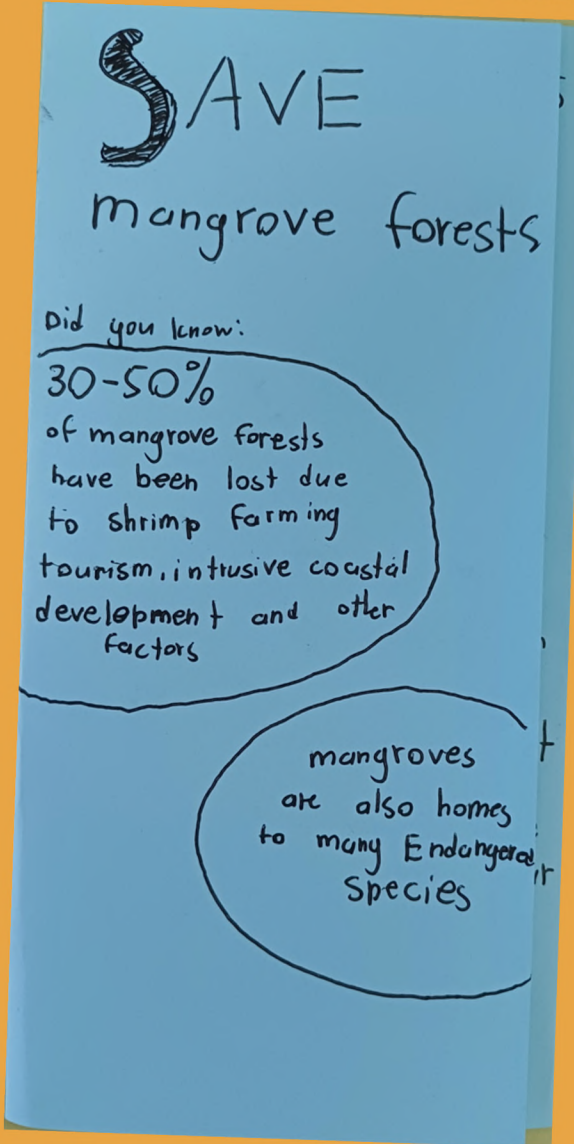 SAVE
mangrove forests
Did you know:
30-50%
of mangrove forests
have been lost due
to shrimp farming
tourism, intrusive coastal
development and other
factors
mangroves
are also homes
to many Endangered
species